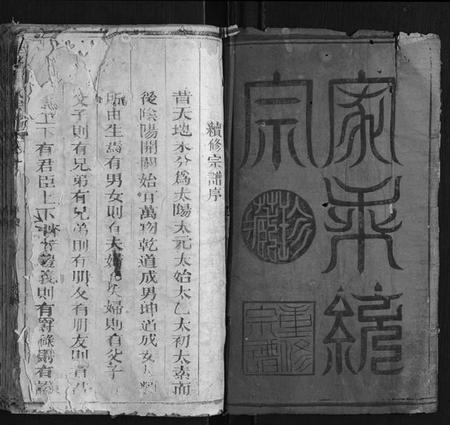 家乘統
宗
珍藏
重修
宗譜
續修宗譜序
昔天地未分為太陽太元太始太乙太初太素而
後陰陽開闢始有萬物乾道成男坤道成女
所由生焉有男女則有夫婦有夫婦則有父子
父子則有兄弟有兄弟則有朋友有朋友則有君
上下有君臣上下